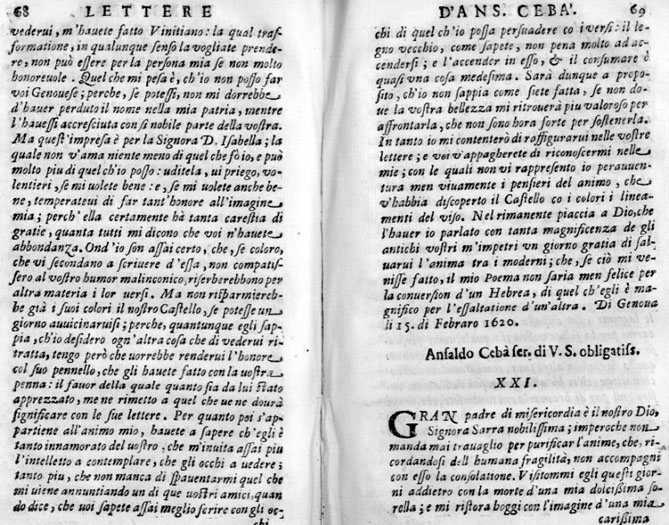 68 LETTERE
vederui, m'hauete fatto Vinitiano: la qual tras-
formatione, in qualunque senso la vogliate prende-
re, non può essere per la persona mia se non molto
honoreuole. Quel che mi pesa è, ch'io non posso far
voi Genouese; perche, se potessi, non mi dorrebbe
d'hauer perduto il nome nella mia patria, mentre
l'hauessi accresciuta con sì nobile parte della vostra.
Ma quest'impresa è per la Signora D. Isabella; la
quale non v'ama niente meno di quel che fò io, e può
molto più di quel ch'io posso: uditela, ui priego, vo-
lentieri, se mi uolete bene: e, se mi uolete anche be-
ne, temperateui di far tant'honore all'imagine
mia; perch'ella certamente hà tanta carestia di
gratie, quanta tutti mi dicono che voi n'hauete
abbondanza. Ond'io son assai certo, che, se coloro,
che vi secondano a scriuere d'essa, non compatis-
sero al vostro humor malinconico, riserberebbono per
altra materia i lor versi. Ma non risparmiereb-
be già i suoi colori il nostro Castello, se potesse un
giorno auuicinaruisi; perche, quantunque egli sap-
pia, ch'io desidero ogn'altra cosa che di vederui ri-
tratta, tengo però che uorrebbe renderui l'honore
col suo pennello, che gli hauete fatto con la uostra
penna: il fauor della quale quanto sia da lui stato
apprezzato, me ne rimetto a quel che ue ne dourà
significare con le sue lettere. Per quanto poi s'ap-
partiene all'animo mio, hauete a sapere ch'egli è
tanto innamorato del uostro, che m'inuita assai più
l'intelletto a contemplare, che gli occhi a vedere;
tanto più, che non manca di spauentarmi quel che
mi uiene annuntiando un di que uostri amici, quan-
do dice, che uoi sapete assai meglio scrire con gli oc-
chi
D'ANS. CEBA'. 69
chi di quel ch'io possa persuadere co i versi: il le-
gno vecchio, come sapete, non pena molto ad ac-
cendersi; e l'accender in esso, & il consumare è
quasi una cosa medesima. Sarà dunque a propo-
sito, ch'io non sappia come siete fatta, se non do-
ue la vostra bellezza mi ritrouerà piu valoroso per
affrontarla, che non sono hora forte per sostenerla.
In tanto io mi contenterò di raffigurarui nelle vostre
lettere; e voi v'appagherete di riconoscermi nelle
mie; con le quali non vi rappresento io perauuen-
tura men viuamente i pensieri del animo, che
v'habbia discoperto il Castello co i colori i linea-
menti del viso. Nel rimanente piaccia a Dio, che
l'hauer io parlato con tanta magnificenza de gli
antichi vostri m'impetri vn giorno gratia di sal-
uarui l'anima tra i moderni; che, se ciò mi ve-
nisse fatto, il mio Poema non saria men felice per
la conuersion d'un Hebrea, di quel ch'egli è ma-
gnifico per l'essaltatione d'un'altra. Di Genoua
li 15. di Febraro 1620.
Ansaldo Cebà ser. di V. S. obligatiss.
XXI.
GRAN padre di misericordia è il nostro Dio,
Signora Sarra nobilissima; imperoche non
manda mai trauaglio per purificar l'anime, che, ri-
cordandosi dell humana fragilità, non accompagni
con esso la consolatione. Visitommi egli questi giorni
addietro con la morte d'una mia dolcissima so-
rella; e mi ristora hoggi con l'imagine d'una mia
carissima